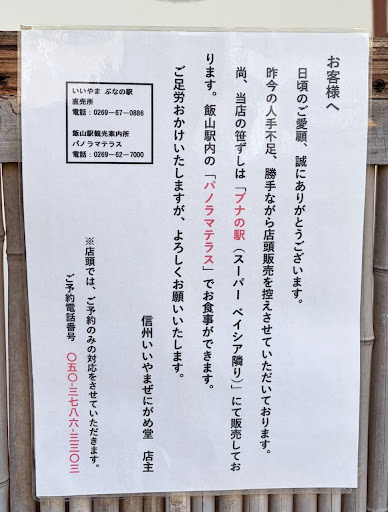 お客様へ
日頃のご愛顧、誠にありがとうございます。
昨今の人手不足、勝手ながら店頭販売を控えさせていただいております。
尚、当店の笹ずしは「ブナの駅（スーパー ベイシア隣り）」にて販売してお
ります。飯山駅内の「パノラマテラス」でお食事ができます。
ご足労おかけいたしますが、よろしくお願いいたします。
信州いいやまぜにがめ堂 店主
※店頭では、ご予約のみの対応をさせていただきます。
ご予約電話番号 〇五〇-三七八六-三三〇三
いいやま ぶなの駅
直売所
電話：0269-67-0886
飯山駅観光案内所
パノラマテラス
電話：0269-62-7000